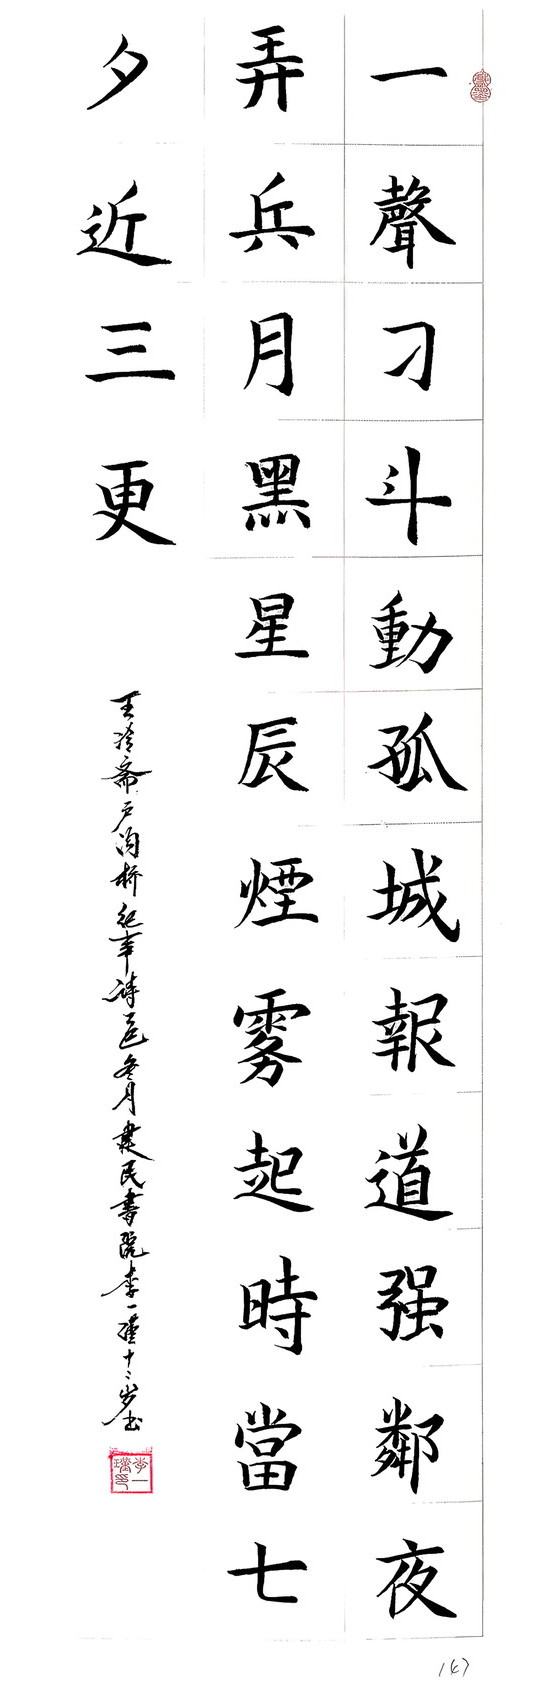 一聲刁斗動孤城報道强鄰夜
弄兵月黑星辰煙雾起時當七
夕近三更
王冷斋卢沟桥纪事诗乙巳冬月建民書院李一瑾十二岁书
147